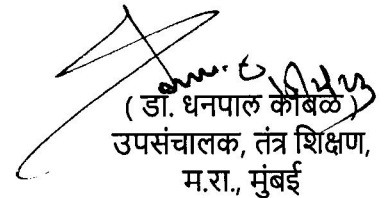 ( डॉ. धनपाल कांबळे )
उपसंचालक, तंत्र शिक्षण,
म.रा., मुंबई